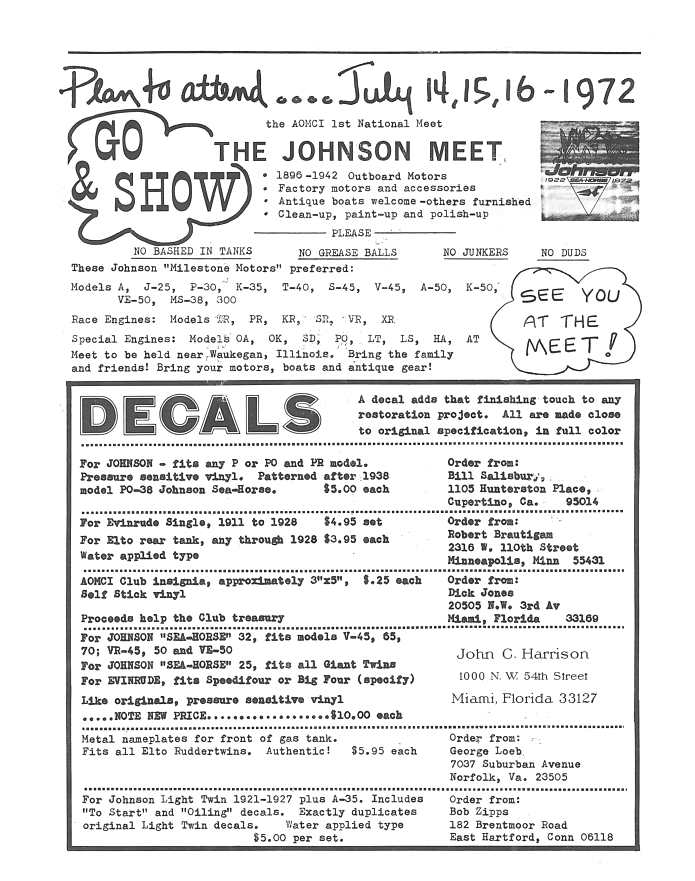 Plan to attend.... July 14,15,16-1972
GO
& SHOW
the AOMCI 1st National Meet
THE JOHNSON MEET
• 1896-1942 Outboard Motors
• Factory motors and accessories
• Antique boats welcome-others furnished
• Clean-up, paint-up and polish-up
Johnson
1922 SEA-HORSE 1972
PLEASE
NO BASHED IN TANKS NO GREASE BALLS NO JUNKERS NO DUDS
These Johnson "Milestone Motors" preferred:
Models A, J-25, P-30, K-35, T-40, S-45, V-45, A-50, K-50,
VE-50, MS-38, 300
Race Engines: Models PR, KR, SR, VR, XR
Special Engines: Models OA, OK, SD, PO, LT, LS, HA, AT
Meet to be held near Waukegan, Illinois. Bring the family
and friends! Bring your motors, boats and antique gear!
SEE YOU
AT THE
MEET!
DECALS
A decal adds that finishing touch to any
restoration project. All are made close
to original specification, in full color
For JOHNSON - fits any P or PO and PR model.
Pressure sensitive vinyl. Patterned after 1938
model PO-38 Johnson Sea-Horse. $5.00 each
Order from:
Bill Salisbury,
1105 Hunterston Place,
Cupertino, Ca. 95014
For Evinrude Single, 1911 to 1928 $4.95 set
For Elto rear tank, any through 1928 $3.95 each
Water applied type
Order from:
Robert Brautigam
2316 W. 110th Street
Minneapolis, Minn 55431
AOMCI Club insignia, approximately 3"x5", $.25 each
Self Stick vinyl
Proceeds help the Club treasury
Order from:
Dick Jones
20505 N.W. 3rd Av
Miami, Florida 33169
For JOHNSON "SEA-HORSE" 32, fits models V-45, 65,
70; VR-45, 50 and VE-50
For JOHNSON "SEA-HORSE" 25, fits all Giant Twins
For EVINRUDE, fits Speedifour or Big Four (specify)
Like originals, pressure sensitive vinyl
.....NOTE NEW PRICE...................$10.00 each
John C. Harrison
1000 N. W. 54th Street
Miami, Florida 33127
Metal nameplates for front of gas tank.
Fits all Elto Ruddertwins. Authentic! $5.95 each
Order from:
George Loeb
7037 Suburban Avenue
Norfolk, Va. 23505
For Johnson Light Twin 1921-1927 plus A-35. Includes
"To Start" and "Oiling" decals. Exactly duplicates
original Light Twin decals. Water applied type
$5.00 per set.
Order from:
Bob Zipps
182 Brentmoor Road
East Hartford, Conn 06118